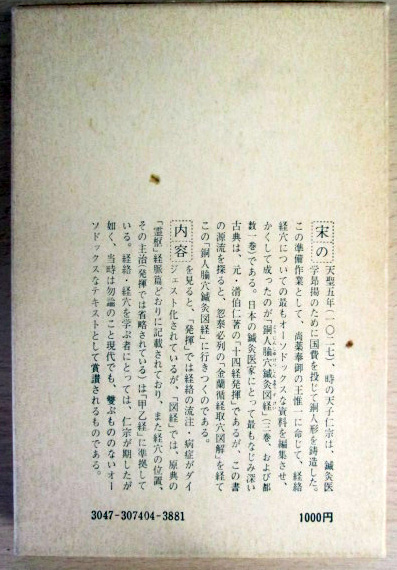 宋の 天聖五年(一〇二七)、時の天子仁宗は、鍼灸医
学昂揚のために国費を投じて銅人形を鋳造した。
この準備作業として、尚薬奉御の王惟一に命じて、経絡
経穴についての最もオーソドックスな資料を編集させ、
かくして成ったのが「銅人腧穴鍼灸図経」(三巻、および都
数一巻)である。日本の鍼灸医家にとって最もなじみ深い
古典は、元・滑伯仁著の「十四経発揮」であるが、この書
の源流を探ると、忽泰必列の「金蘭循経取穴図解」を経て
この「銅人腧穴鍼灸図経」に行きつくのである。
内容 を見ると、「発揮」では経絡の流注・病症がダイ
ジェスト化されているが、「図経」では、原典の
「霊枢」経脈篇どおりに記載されており、また経穴の位置、
その主治(発揮では省略されている)は「甲乙経」に準拠して
いる。経絡・経穴を学ぶ者にとっては、仁宗が期したが
如く、当時は勿論のこと現代でも、雙ぶもののないオー
ソドックスなテキストとして賞讃されるものである。
3047-307404-3881
1000円